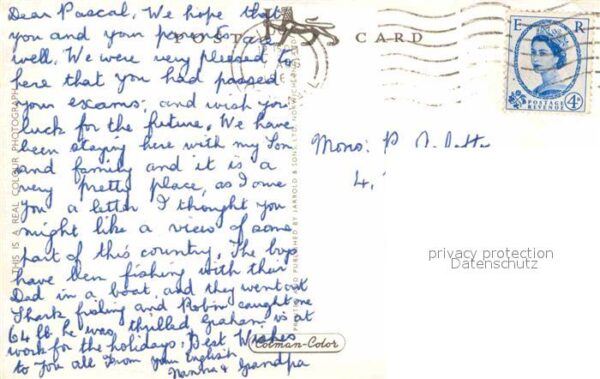 Dear Pascal, We hope that
you and your parents are
well. We were very pleased to
here that you had passed
your exams, and wish you
luck for the future. We have
been staying here with my Son
and family and it is a
very pretty place, as I owe
you a letter I thought you
might like a view of some
part of this country. The boys
have been fishing with their
Dad in a boat and they went out
Shark fishing and Robin caught one
64 lb he was thrilled Graham is at
work for the holidays. Best Wishes
to you all From your English
Nanna & Grandpa
POST CARD
E R
POSTAGE
REVENUE
4D
Mons: P
4,
privacy protection
Datenschutz
THIS IS A REAL COLOUR PHOTOGRAPH
PUBLISHED BY JARROLD & SONS LTD, NORWICH
Colman-Color